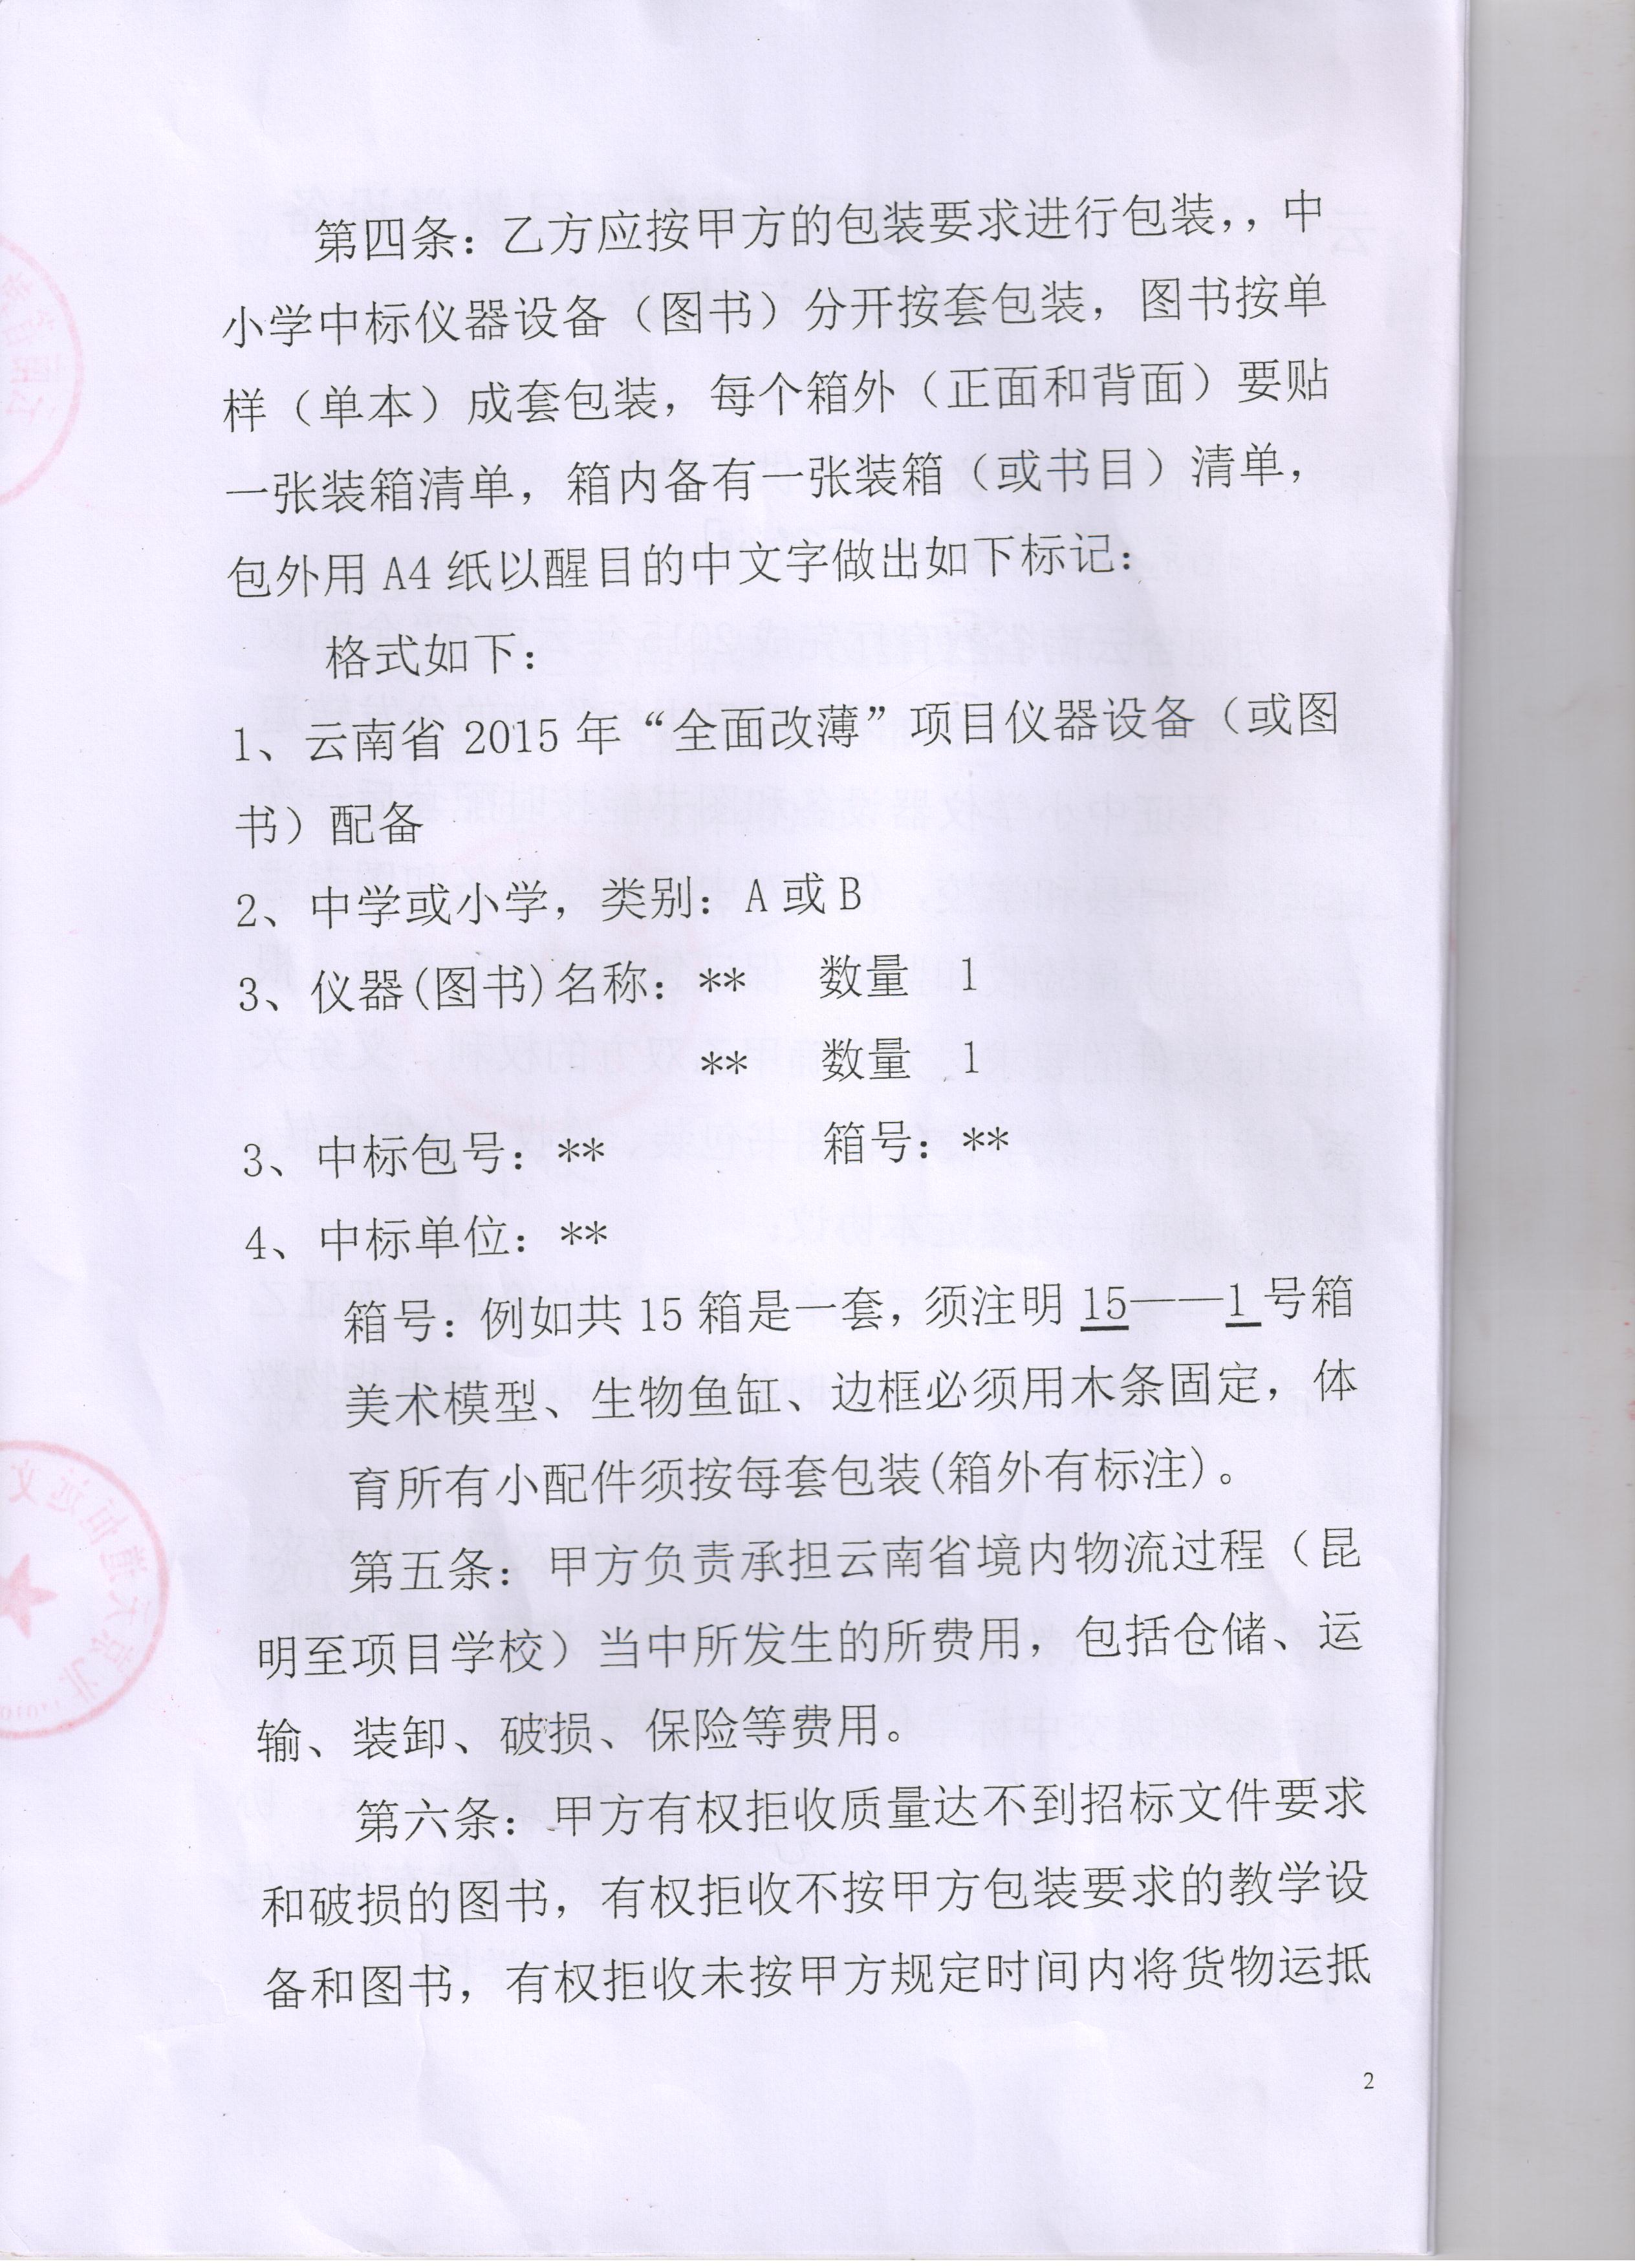 第四条：乙方应按甲方的包装要求进行包装，，中
小学中标仪器设备（图书）分开按套包装，图书按单
样（单本）成套包装，每个箱外（正面和背面）要贴
一张装箱清单，箱内备有一张装箱（或书目）清单，
包外用 A4 纸以醒目的中文字做出如下标记：
格式如下：
1、云南省 2015 年“全面改薄”项目仪器设备（或图
书）配备
2、中学或小学，类别：A 或 B
3、仪器(图书)名称：** 数量 1
** 数量 1
3、中标包号：** 箱号：**
4、中标单位：**
箱号：例如共 15 箱是一套，须注明 15——1 号箱
美术模型、生物鱼缸、边框必须用木条固定，体
育所有小配件须按每套包装(箱外有标注)。
第五条：甲方负责承担云南省境内物流过程（昆
明至项目学校）当中所发生的所费用，包括仓储、运
输、装卸、破损、保险等费用。
第六条：甲方有权拒收质量达不到招标文件要求
和破损的图书，有权拒收不按甲方包装要求的教学设
备和图书，有权拒收未按甲方规定时间内将货物运抵
2